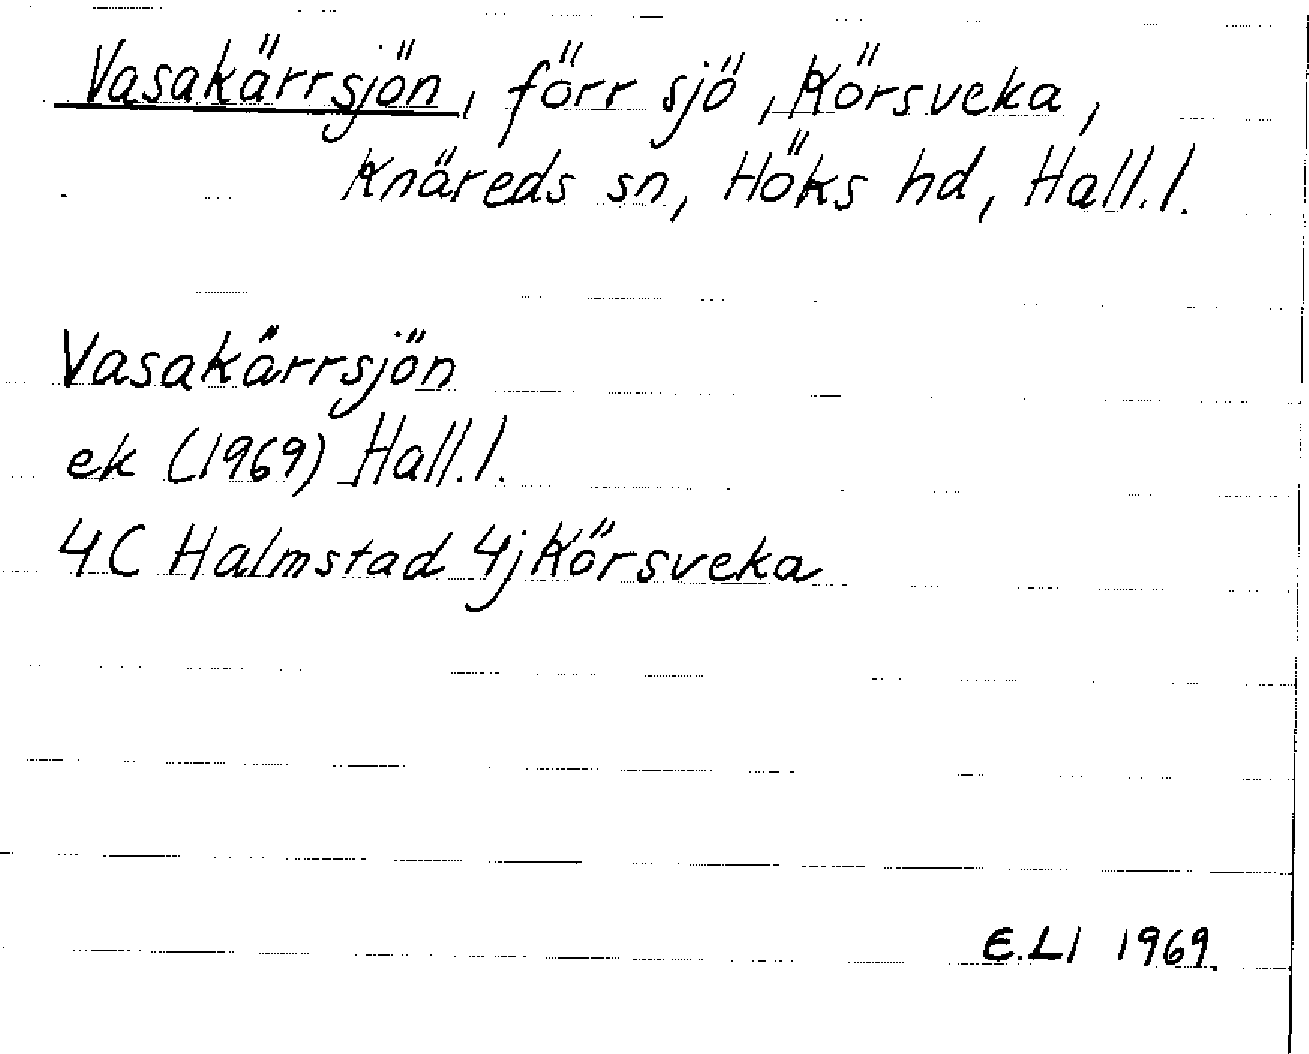 Vasakärrsjön, förr sjö, Körsveka,
Knäreds sn, Höks hd, Hall.l.
Vasakärrsjön
ek (1969) Hall.l.
4C Halmstad 4j Körsveka
E.LI 1969.